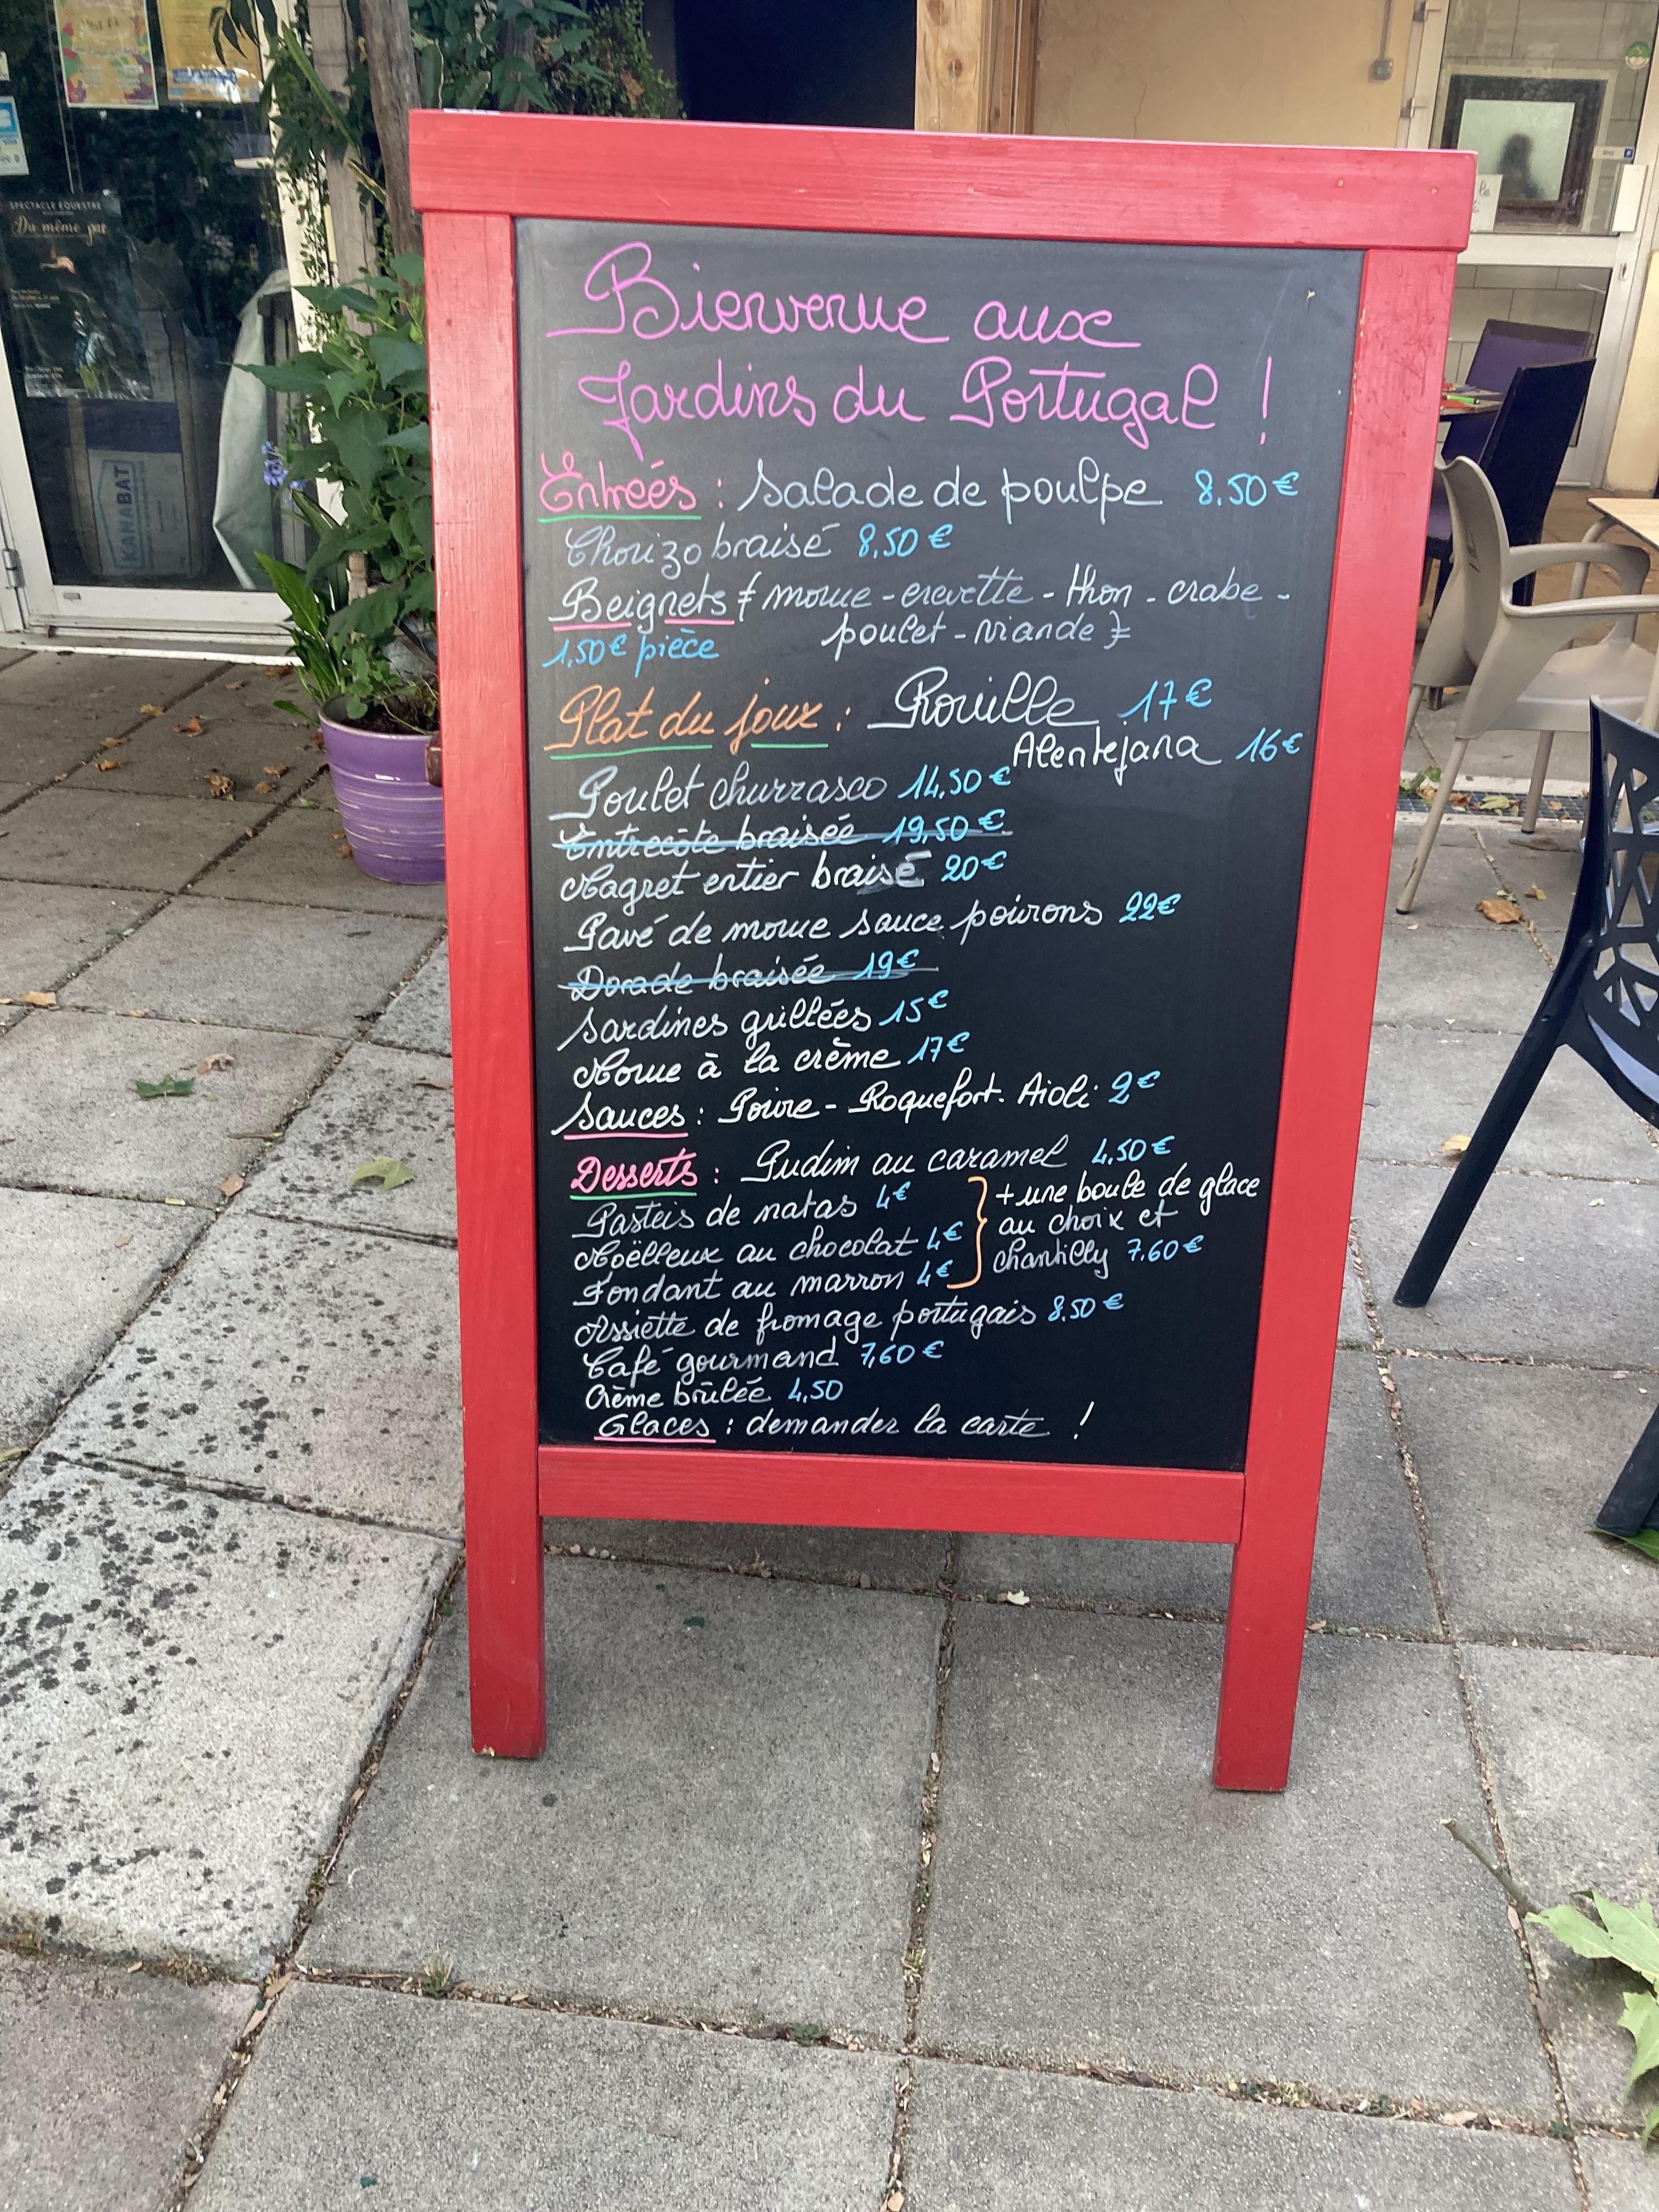 SPECTACLE ÉQUESTRE
Du même pas
KANABAT
Bienvenue aux
Jardins du Portugal !
Entréés : Salade de poulpe 8.50€
Chorizo braisé 8,50€
Beignets { morue - crevette - thon - crabe -
1,50€ pièce poulet - viande }
Plat du jour : Rouille 17€
Alentejana 16€
Poulet churrasco 14,50€
Entrecôte braisée 19,50€
Magret entier braisé 20€
Pavé de morue sauce poivrons 22€
Dorade braisée 19€
Sardines grillées 15€
Morue à la crème 17€
Sauces : Poivre - Roquefort - Aioli 2€
Desserts : Pudim au caramel 4,50€
Pasteis de natas 4€
Moëlleux au chocolat 4€
Fondant au marron 4€
+ une boule de glace
au choix et
chantilly 7,60€
Assiette de fromage portugais 8.50€
Café gourmand 7,60€
Crème brûlée 4,50
Glaces : demander la carte !